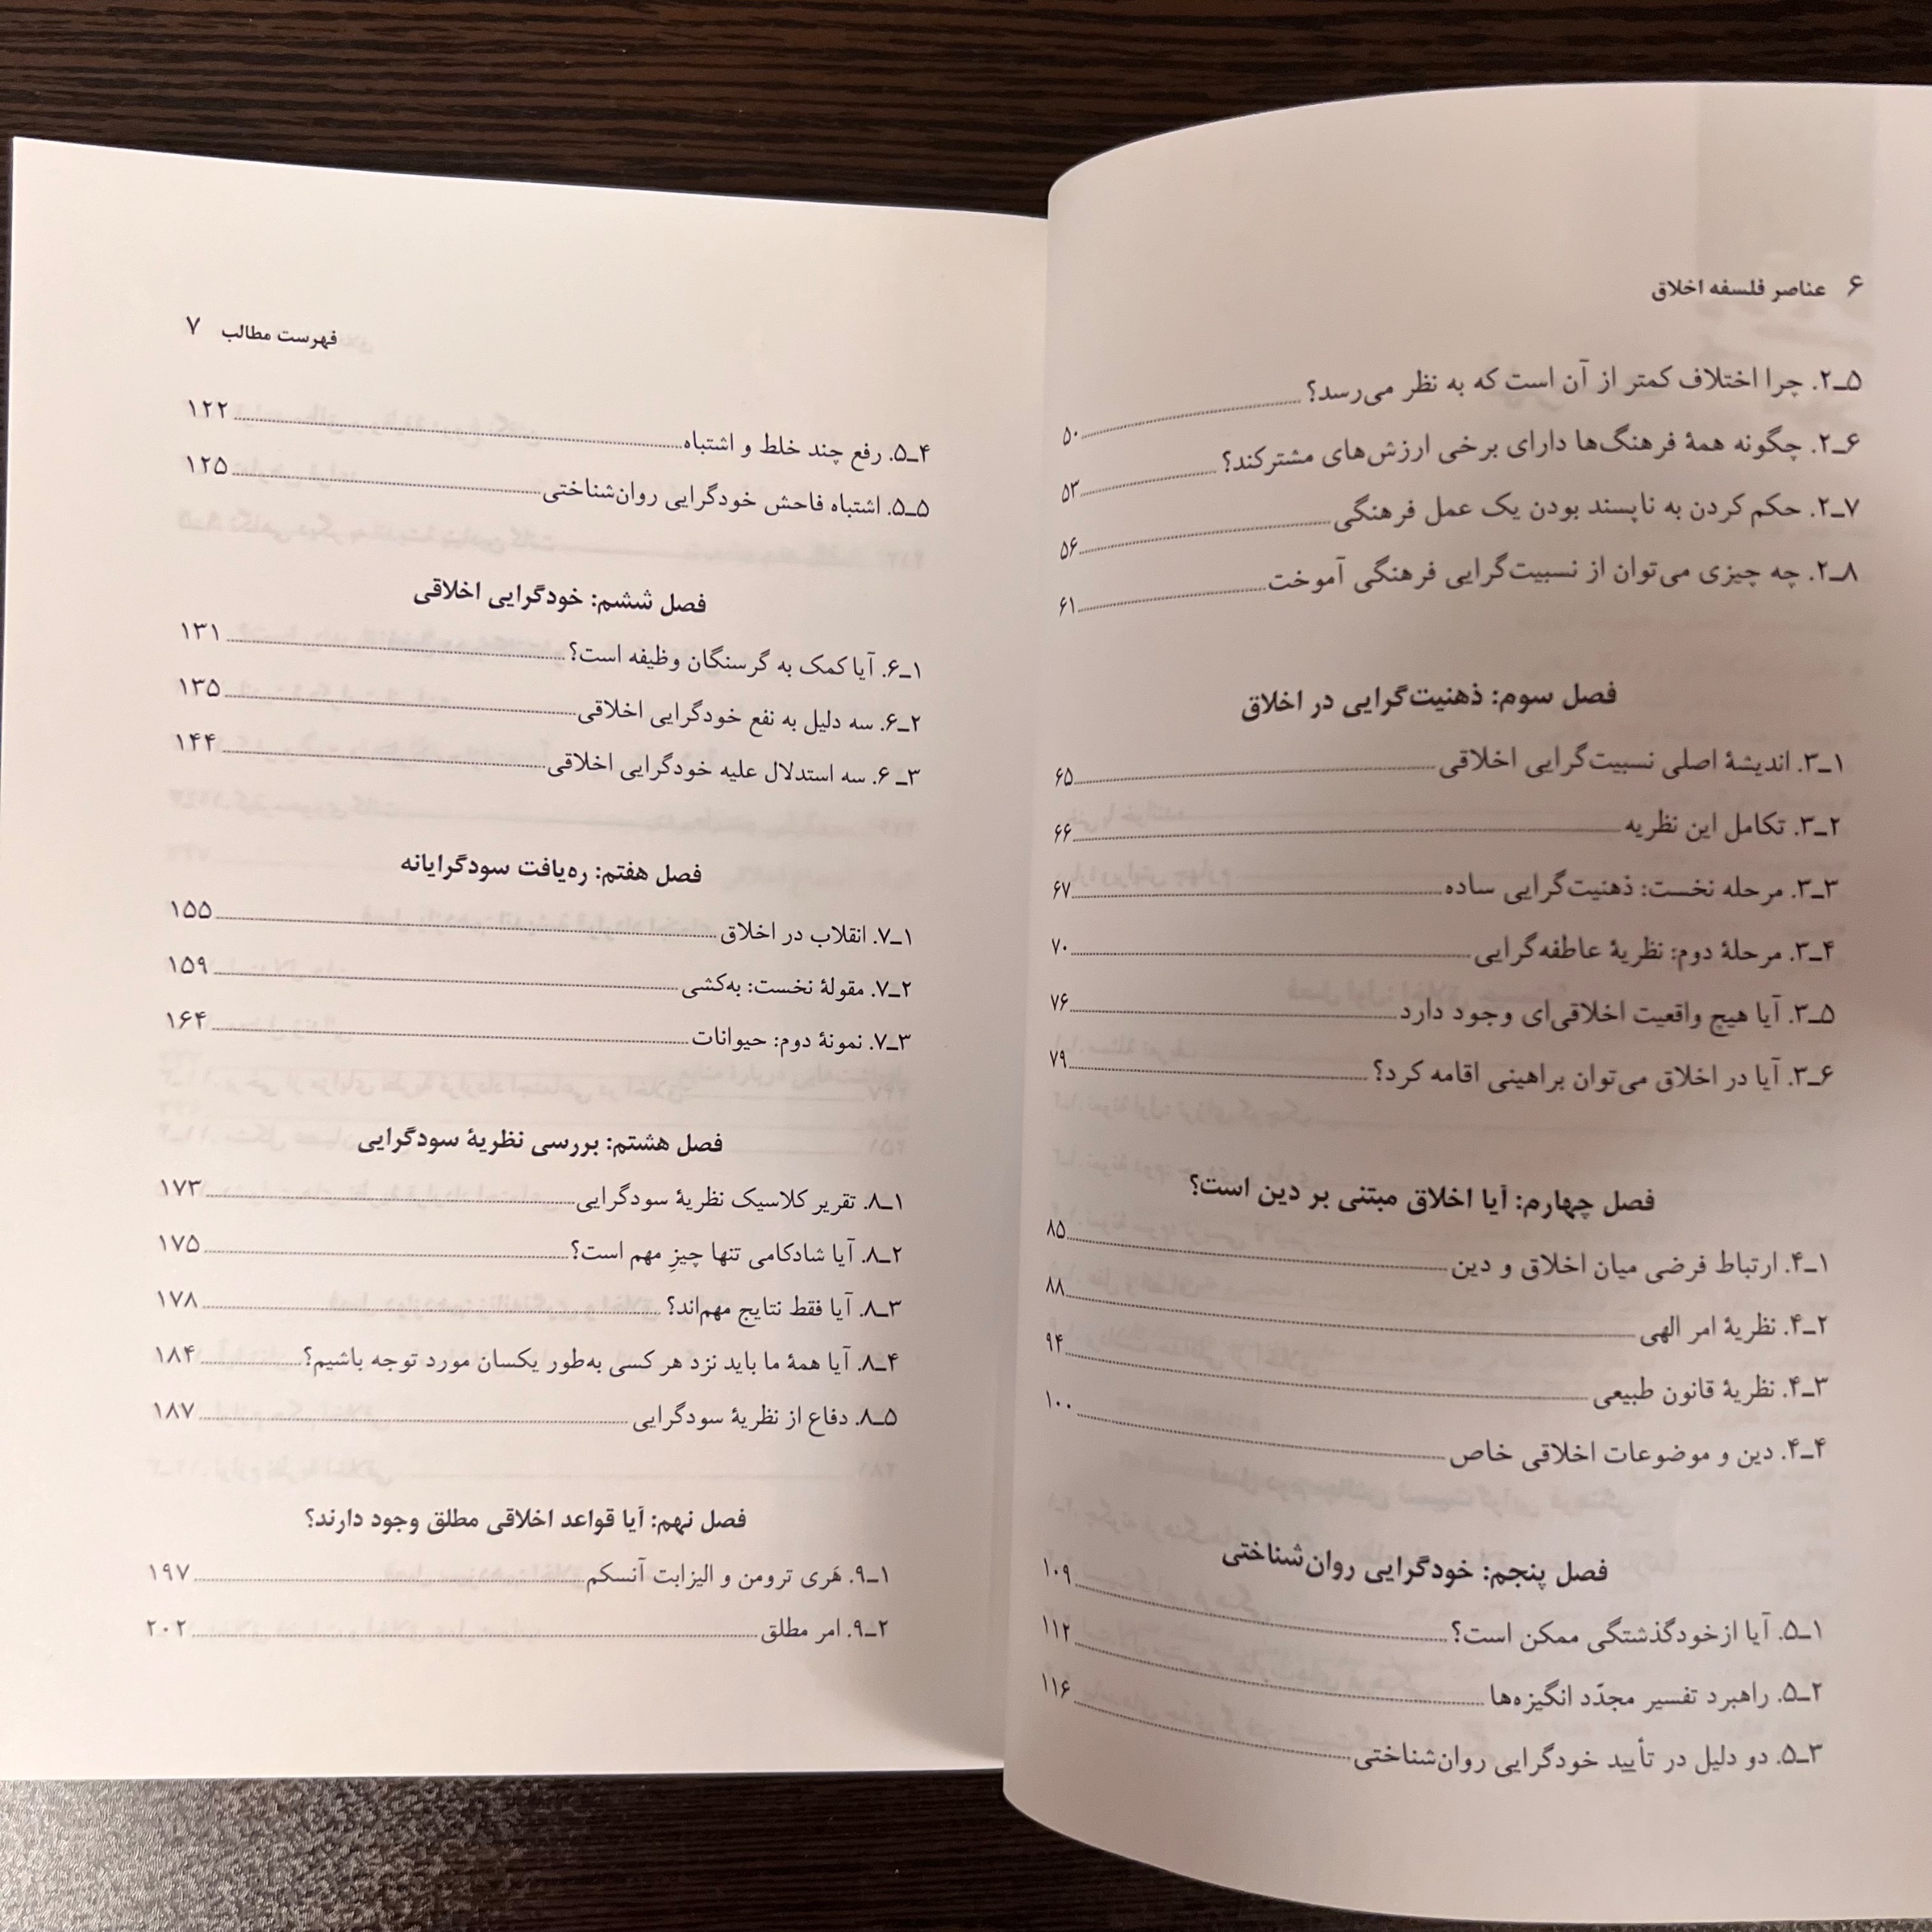 ۶ عناصر فلسفه اخلاق
۲ـ۵. چرا اختلاف کمتر از آن است که به نظر می‌رسد؟ ۵۰
۲ـ۶. چگونه همهٔ فرهنگ‌ها دارای برخی ارزش‌های مشترکند؟ ۵۳
۲ـ۷. حکم کردن به ناپسند بودن یک عمل فرهنگی ۵۶
۲ـ۸. چه چیزی می‌توان از نسبیت‌گرایی فرهنگی آموخت ۶۱
فصل سوم: ذهنیت‌گرایی در اخلاق
۳ـ۱. اندیشهٔ اصلی نسبیت‌گرایی اخلاقی ۶۵
۳ـ۲. تکامل این نظریه ۶۶
۳ـ۳. مرحله نخست: ذهنیت‌گرایی ساده ۶۷
۳ـ۴. مرحلهٔ دوم: نظریهٔ عاطفه‌گرایی ۷۰
۳ـ۵. آیا هیچ واقعیت اخلاقی‌ای وجود دارد ۷۶
۳ـ۶. آیا در اخلاق می‌توان براهینی اقامه کرد؟ ۷۹
فصل چهارم: آیا اخلاق مبتنی بر دین است؟
۴ـ۱. ارتباط فرضی میان اخلاق و دین ۸۵
۴ـ۲. نظریهٔ امر الهی ۸۸
۴ـ۳. نظریهٔ قانون طبیعی ۹۴
۴ـ۴. دین و موضوعات اخلاقی خاص ۱۰۰
فصل پنجم: خودگرایی روان‌شناختی
۵ـ۱. آیا ازخودگذشتگی ممکن است؟ ۱۰۹
۵ـ۲. راهبرد تفسیر مجدّد انگیزه‌ها ۱۱۲
۵ـ۳. دو دلیل در تأیید خودگرایی روان‌شناختی ۱۱۶
فهرست مطالب ۷
۵ـ۴. رفع چند خلط و اشتباه ۱۲۲
۵ـ۵. اشتباه فاحش خودگرایی روان‌شناختی ۱۲۵
فصل ششم: خودگرایی اخلاقی
۶ـ۱. آیا کمک به گرسنگان وظیفه است؟ ۱۳۱
۶ـ۲. سه دلیل به نفع خودگرایی اخلاقی ۱۳۵
۶ـ۳. سه استدلال علیه خودگرایی اخلاقی ۱۴۴
فصل هفتم: ره‌یافت سودگرایانه
۷ـ۱. انقلاب در اخلاق ۱۵۵
۷ـ۲. مقولهٔ نخست: به‌کشی ۱۵۹
۷ـ۳. نمونهٔ دوم: حیوانات ۱۶۴
فصل هشتم: بررسی نظریهٔ سودگرایی
۸ـ۱. تقریر کلاسیک نظریهٔ سودگرایی ۱۷۳
۸ـ۲. آیا شادکامی تنها چیزِ مهم است؟ ۱۷۵
۸ـ۳. آیا فقط نتایج مهم‌اند؟ ۱۷۸
۸ـ۴. آیا همهٔ ما باید نزد هر کسی به‌طور یکسان مورد توجه باشیم؟ ۱۸۴
۸ـ۵. دفاع از نظریهٔ سودگرایی ۱۸۷
فصل نهم: آیا قواعد اخلاقی مطلق وجود دارند؟
۹ـ۱. هَری ترومن و الیزابت آنسکم ۱۹۷
۹ـ۲. امر مطلق ۲۰۲